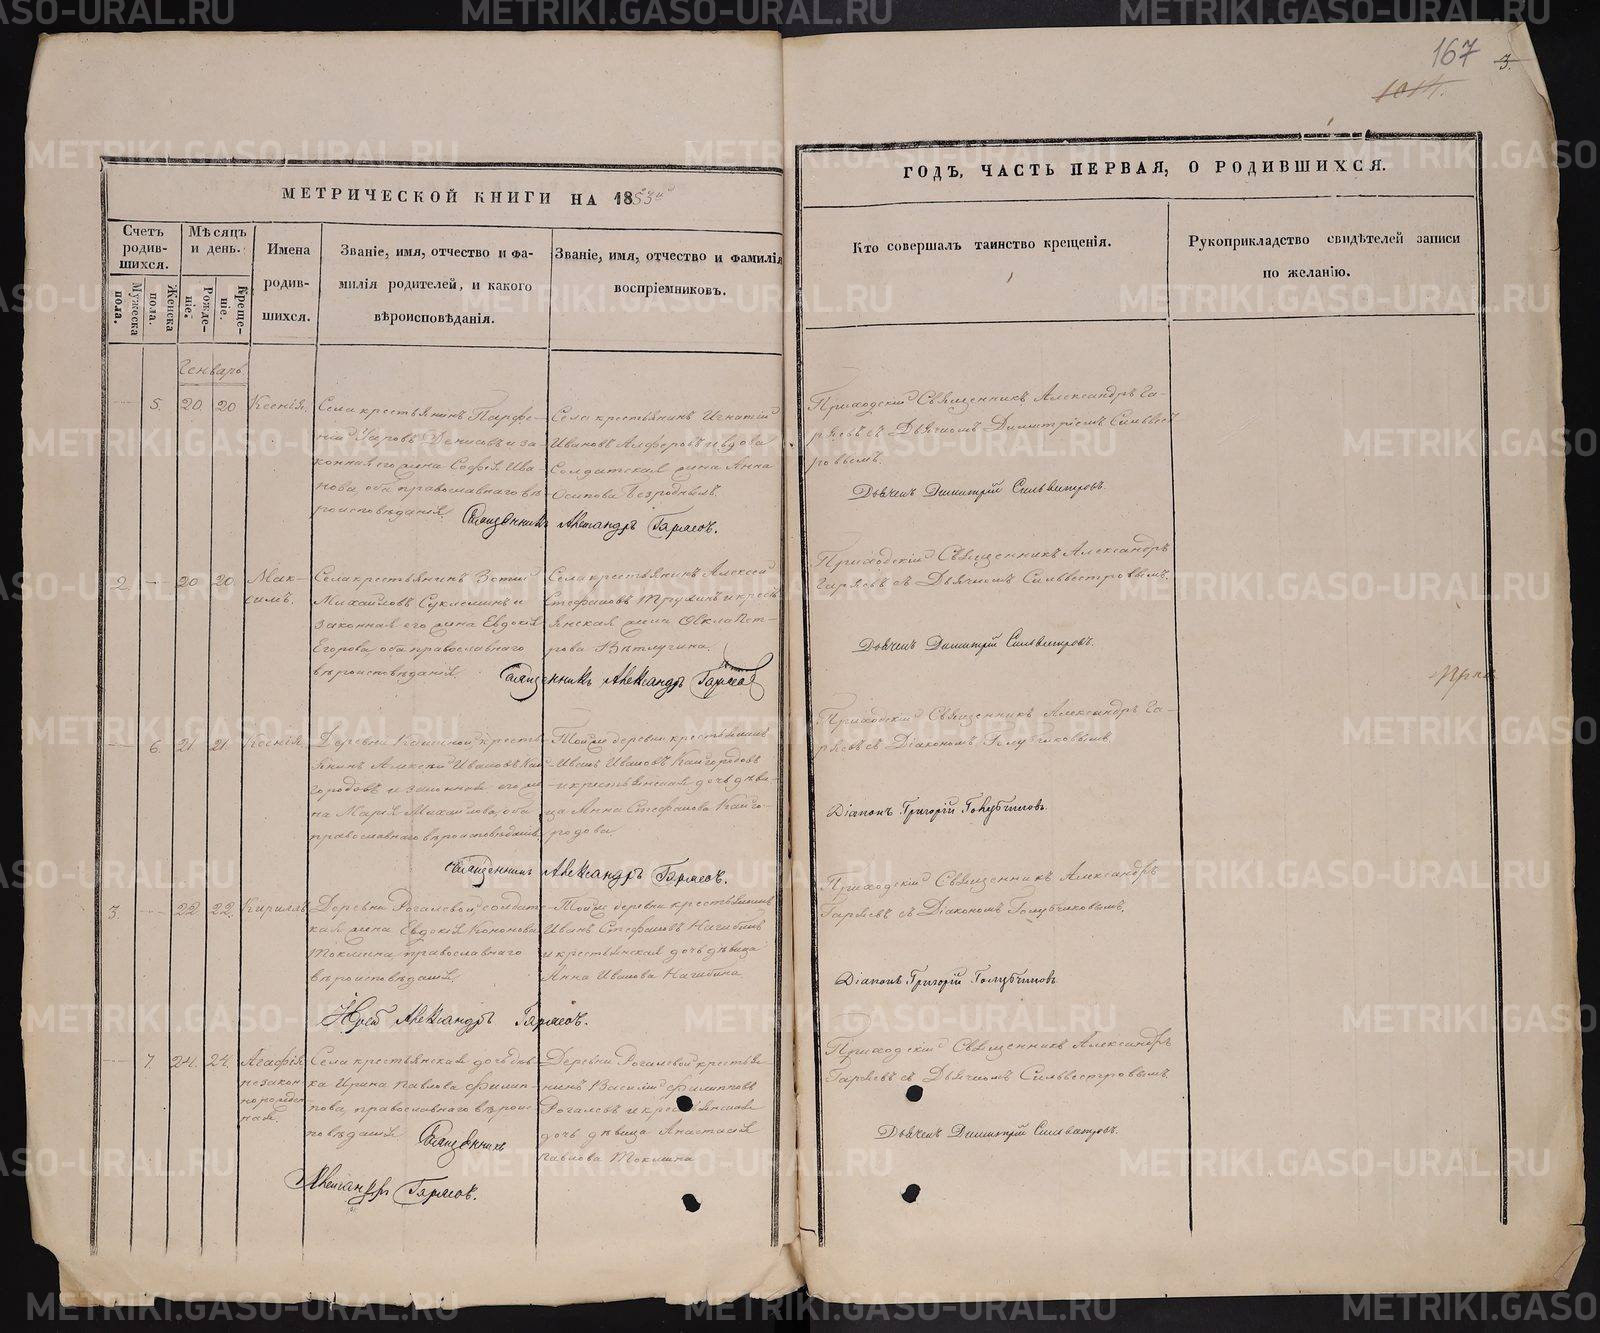 167
3.
1014.
МЕТРИЧЕСКОЙ КНИГИ НА 1853й
ГОДЪ, ЧАСТЬ ПЕРВАЯ, О РОДИВШИХСЯ.
Счетъ родив-шихся.
Мужеска пола.
Женска пола.
Мѣсяцъ и день.
Рожде-ніе.
Креще-ніе.
Имена
родив-
шихся.
Званіе, имя, отчество и фа-
милія родителей, и какого
вѣроисповѣданія.
Званіе, имя, отчество и фамилія
воспріемниковъ.
Кто совершалъ таинство крещенія.
Рукоприкладство свидѣтелей записи
по желанію.
Генварь
5. 20 20 Ксенія.
Села крестьянинъ Парфе-
ній Денисовъ и за-
конная его жена Софія Ива-
нова, оба православнаго вѣ-
роисповѣданія.
Села крестьянинъ Игнатій
Ивановъ Алферовъ и вдова
Солдатская жена Анна
Осипова Безродныхъ.
Священникъ Александръ Гаряевъ.
Приходскій Священникъ Александръ Га-
ряевъ съ Дьячкомъ Димитріемъ Сильвест-
ровымъ.
Дьячекъ Димитрій Сильвестровъ.
2. 20 20 Мак-
симъ.
Села крестьянинъ
Михайловъ и
законная его жена Евдокія
Егорова, оба православнаго
вѣроисповѣданія.
Села крестьянинъ Алексей
Стефановъ и кресть
янская жена Ѳекла Пет-
рова Вѣтлугина.
Священникъ Александръ Гаряевъ
Приходскій Священникъ Александръ
Гаряевъ съ Дьячкомъ Сильвестровымъ.
Дьячекъ Димитрій Сильвестровъ.
6. 21 21 Ксенія.
Деревни крестья
нинъ Алексѣй Ивановъ Кай
городовъ и законная его же
на Марія Михайлова, оба
православнаго вѣроисповѣданія.
Той же деревни крестьянинъ
Иванъ Ивановъ Кайгородовъ
и крестьянская дочь дѣви-
ца Анна Стефанова Кайго-
родова.
Священникъ Александръ Гаряевъ.
Приходскій Священникъ Александръ Га-
ряевъ съ Діакономъ Голубчиковымъ.
Діаконъ Григорій Голубчиковъ.
3. 22 22 Кириллъ
Деревни Рогалевой солдатс
кая жена Евдокія Кононова
Токмина, православнаго
вѣроисповѣданія.
Той же деревни крестьянинъ
Иванъ Стефановъ Нагибинъ
и крестьянская дочь дѣвица
Анна Иванова Нагибина
Іерей Александръ Гаряевъ.
Приходскій Священникъ Александръ
Гаряевъ съ Діакономъ Голубчиковымъ.
Діаконъ Григорій Голубчиковъ
7. 24. 24. Агафія
незакон-
норожден-
ная.
Села крестьянская дочь дѣв-
ка Ирина Павлова Филип-
пова, православнаго вѣроис-
повѣданія.
Деревни Рогалевой крестья-
нинъ Василій Филипповъ
Рогалевъ и крестьянская
дочь дѣвица Анастасія
Павлова Токмина
Священникъ
Александръ Гаряевъ.
Приходскій Священникъ Александръ
Гаряевъ съ Дьячкомъ Сильвестровымъ.
Дьячекъ Димитрій Сильвестровъ.
METRIKI.GASO-URAL.RU